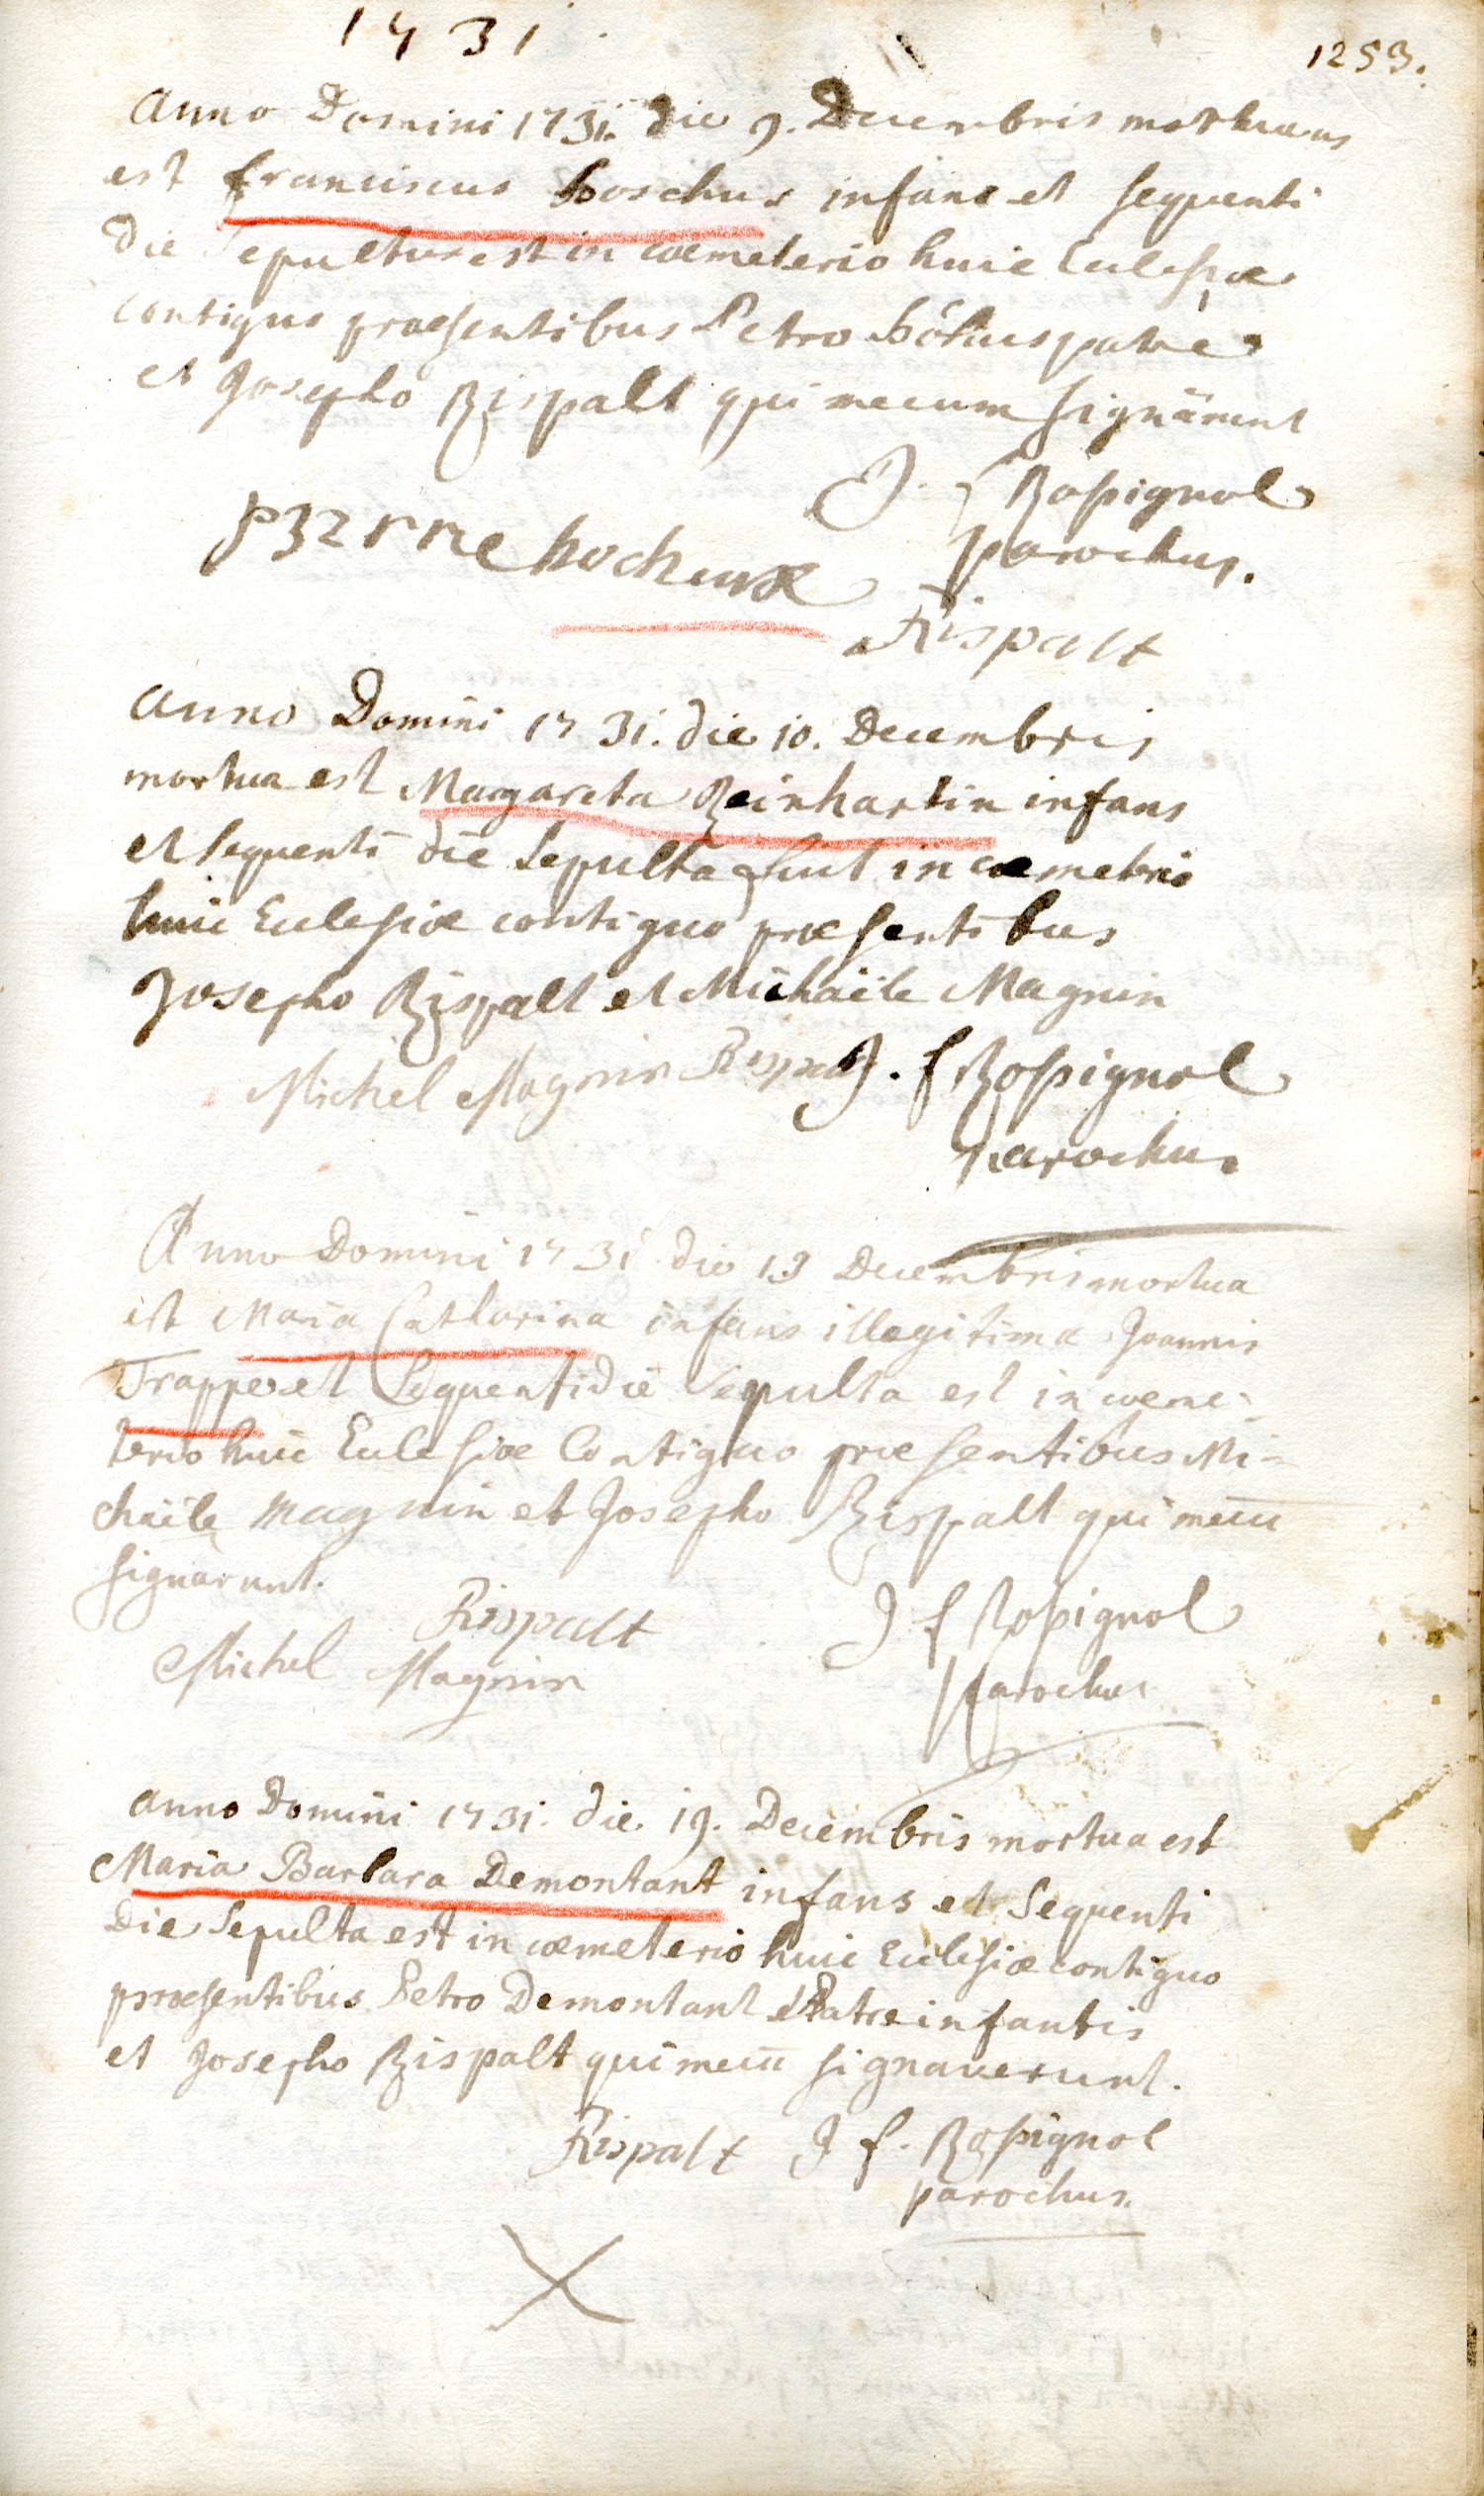 1731
1253.
Anno Domini 1731. die 9. Decembris mortuus
est franciscus hoschus infans et sequenti
die Sepultus est in coemeterio huic Ecclesiæ
contiguo præsentibus Petro patre
et Josepho Rispalt qui mecum signârunt
J. f Rossignol
parochus.
hocheux
Rispalt
Anno Domini 1731. die 10. Decembris
mortua est Margareta Reinhartin infans
et sequenti die Sepulta fuit in coemeterio
huic Ecclesiæ contiguo præsentibus
Josepho Rispalt et Michaële Magnin
Michel Magnin Rispalt J. f Rossignol
Parochus
Anno Domini 1731 die 19 Decembris mortua
est Maria Catharina infans illegitima Joannis
Trapper et Sequenti die Sepulta est in coeme-
terio huic Ecclesiæ Contiguo præsentibus Mi-
chaële Magnin et Josepho Rispalt qui mecū
signarunt.
Rispalt
J f Rossignol
Michel Magnin
Parochus
anno Domini 1731. die 19. Decembris mortua est
Maria Barbara Demontant infans et Sequenti
Die Sepulta est in coemeterio huic Ecclesiæ contiguo
præsentibus Petro Demontant Patre infantis
et Josepho Rispalt qui mecū signaverunt.
Rispalt J f. Rossignol
parochus.
X